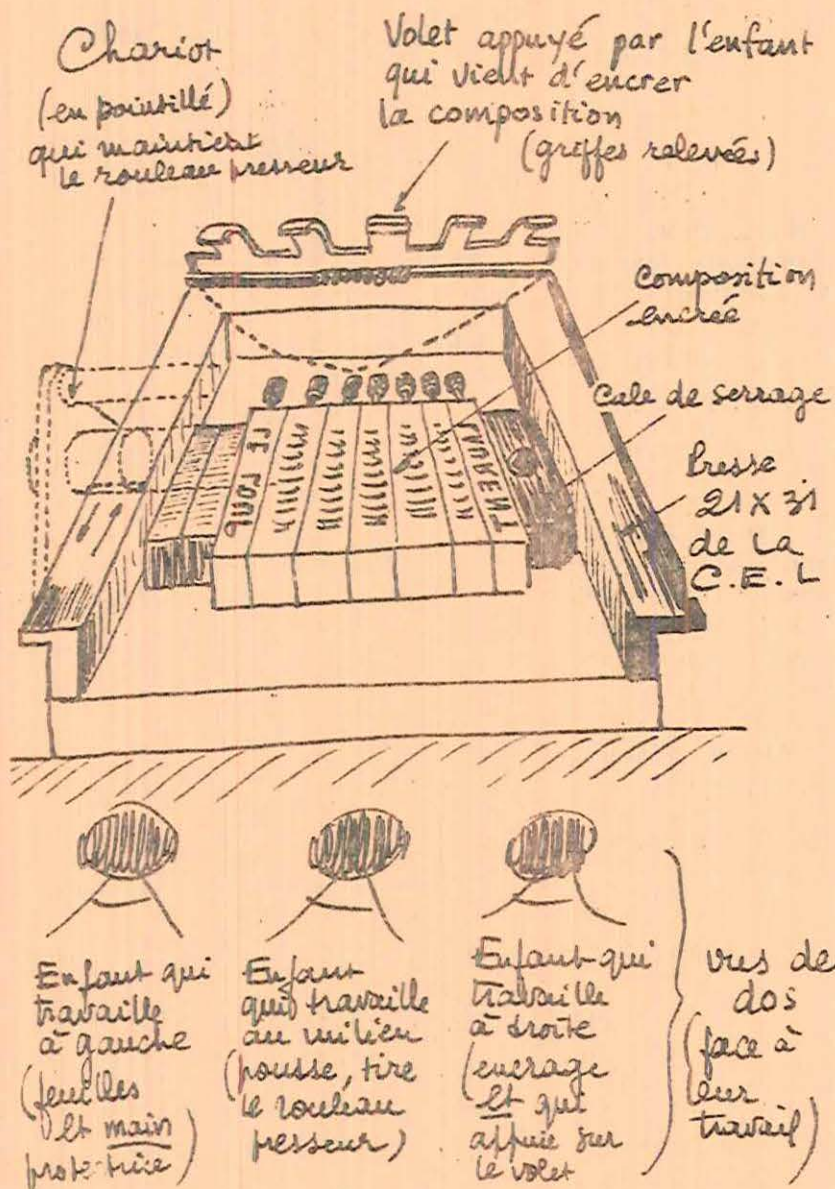 Chariot
(en pointillé)
qui maintient
le rouleau presseur
Volet appuyé par l'enfant
qui vient d'encrer
la composition
(griffes relevées)
Composition
encrée
Cale de serrage
Presse
21 X 31
de la
C.E.L
Enfant qui
travaille
à gauche
(feuilles
et main
protectrice)
Enfant
qui travaille
au milieu
(pousse, tire
le rouleau
presseur)
Enfant qui
travaille
à droite
(encrage
et qui
appuie sur
le volet
vus de
dos
(face à
leur
travail)